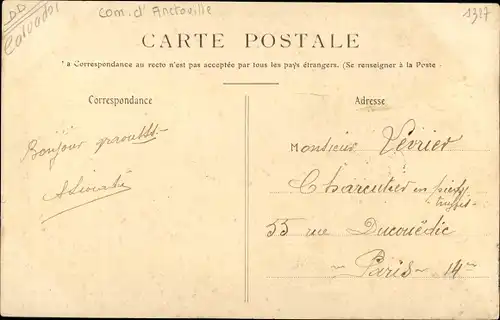 DD
Calvados
Com. d'Anctoville
1387
CARTE POSTALE
a Correspondance au recto n'est pas acceptée par tous les pays étrangers. (Se renseigner à la Poste
Correspondance
Adresse
Bonjour
Monsieur Vévrier
Charcutier en
55 rue Ducouëdic
Paris 14